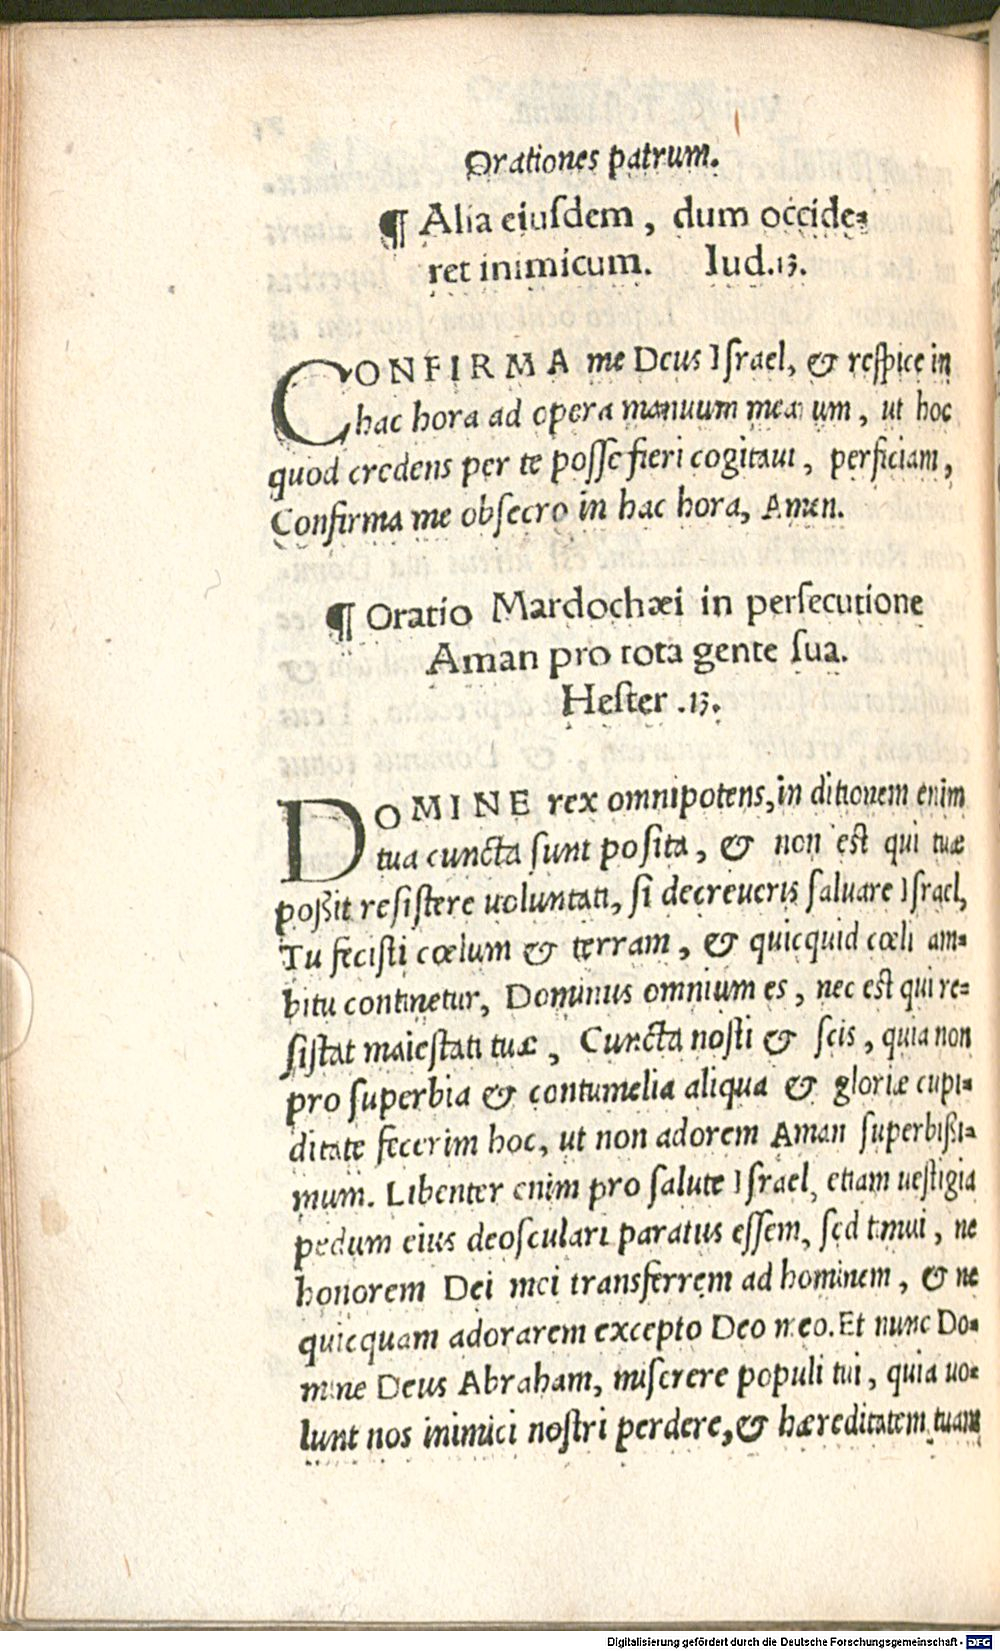 Orationes patrum.
¶ Alia eiusdem, dum occide=
ret inimicum. Iud.13.
CONFIRMA me Deus Israel, & respice in
hac hora ad opera manuum mearum, ut hoc
quod credens per te posse fieri cogitaui, perficiam,
Confirma me obsecro in hac hora, Amen.
¶ Oratio Mardochæi in persecutione
Aman pro tota gente sua.
Hester .13.
DOMINE rex omnipotens, in ditionem enim
tua cuncta sunt posita, & non est qui tuæ
poßit resistere uoluntati, si decreueris saluare Israel,
Tu fecisti cœlum & terram, & quicquid cœli am=
bitu continetur, Dominus omnium es, nec est qui re=
sistat maiestati tuæ, Cuncta nosti & scis, quia non
pro superbia & contumelia aliqua & gloriæ cupi=
ditate fecerim hoc, ut non adorem Aman superbißi=
mum. Libenter enim pro salute Israel, etiam uestigia
pedum eius deosculari paratus essem, sed timui, ne
honorem Dei mei transferrem ad hominem, & ne
quicquam adorarem excepto Deo meo. Et nunc Do=
mine Deus Abraham, miserere populi tui, quia uo=
lunt nos inimici nostri perdere, & hæreditatem tuam
Digitalisierung gefördert durch die Deutsche Forschungsgemeinschaft - DFG